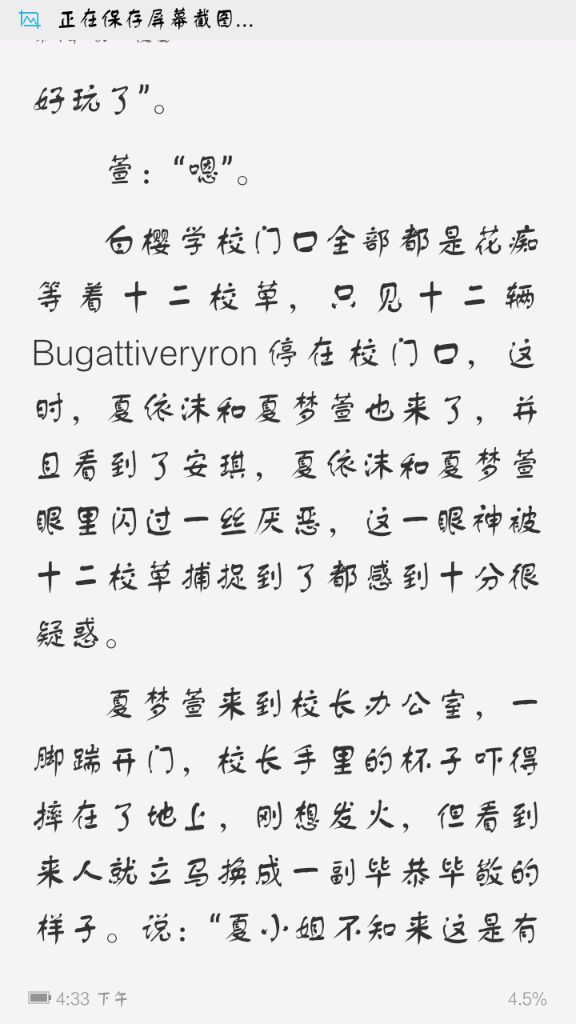 正在保存屏幕截图...
好玩了”。
萱：“嗯”。
白樱学校门口全部都是花痴
等着十二校草，只见十二辆
Bugattiveryron停在校门口，这
时，夏依沫和夏梦萱也来了，并
且看到了安琪，夏依沫和夏梦萱
眼里闪过一丝厌恶，这一眼神被
十二校草捕捉到了都感到十分很
疑惑。
夏梦萱来到校长办公室，一
脚踹开门，校长手里的杯子吓得
摔在了地上，刚想发火，但看到
来人就立马换成一副毕恭毕敬的
样子。说：“夏小姐不知来这是有
4:33 下午
4.5%